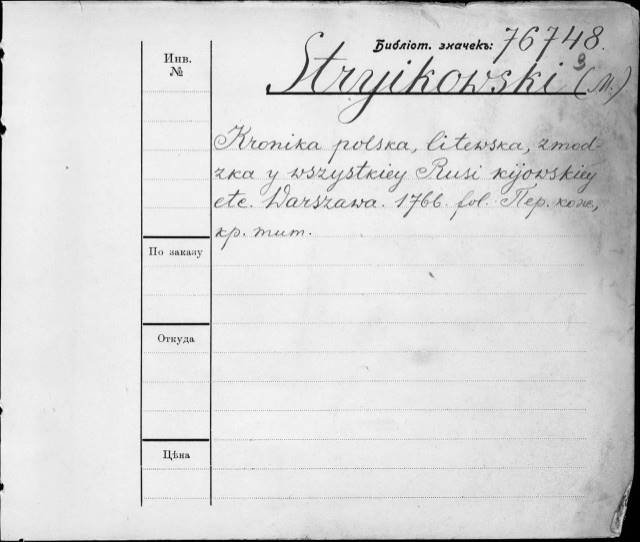 Библіот. значекъ: 76748.
3
Инв.
№
Stryikowski (M.)
Kronika polska, litewska, zmod-
zka y wszystkiey Rusi kijowskiey
etc. Warszawa. 1766. fol. Пер. кож.,
кр. тит.
По заказу
Откуда
Цѣна